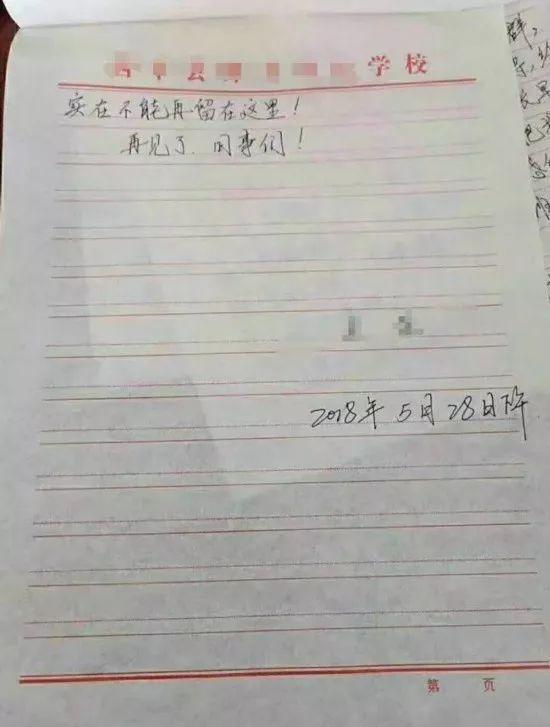 学校
实在不能再留在这里!
再见了.同事们!
2018年5月28日下午
第 页